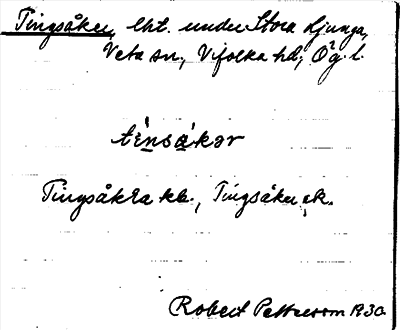 Tingsåker, lht. under Stora Ljunga,
Veta sn., Vifolka hd; Ög. l.
tènsákər
Tingsåkra kb., Tingsåker ek.
Robert Pettersson 1930